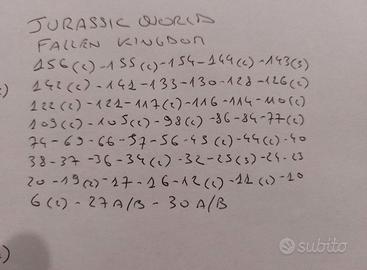 JURASSIC WORLD
FALLEN KINGDOM
156(2) - 155(2) - 154 - 144(2) - 143(3)
142(2) - 141 - 133 - 130 - 128 - 126(2)
122(2) - 121 - 117(2) - 116 - 114 - 110(2)
109(2) - 105(2) - 98(2) - 86 - 84 - 77(2)
74 - 69 - 66 - 57 - 56 - 45(2) - 44(2) - 40
38 - 37 - 36 - 34(2) - 32 - 25(3) - 24 - 23
20 - 19(2) - 17 - 16 - 12(2) - 11(2) - 10
6(2) - 27A/B - 30A/B
subito